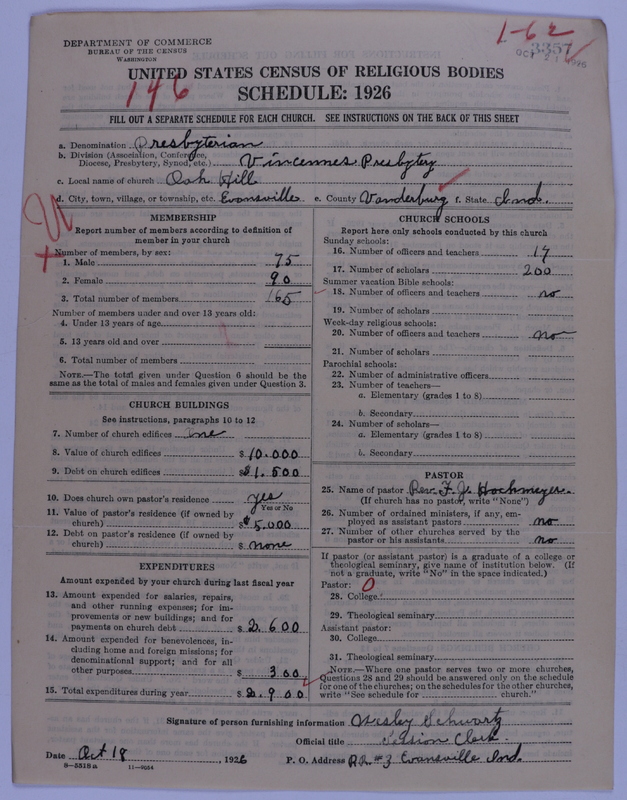 DEPARTMENT OF COMMERCE
BUREAU OF THE CENSUS
WASHINGTON
1-62
3357
UNITED STATES CENSUS OF RELIGIOUS BODIES
SCHEDULE: 1926
146
FILL OUT A SEPARATE SCHEDULE FOR EACH CHURCH. SEE INSTRUCTIONS ON THE BACK OF THIS SHEET
a. Denomination Presbyterian
b. Division (Association, Conference, Diocese, Presbytery, Synod, etc.) Vincennes Presbytery
c. Local name of church Oak Hill
d. City, town, village, or township, etc. Evansville e. County Vanderburg f. State Ind.
MEMBERSHIP
Report number of members according to definition of
member in your church
Number of members, by sex:
1. Male 75
2. Female 90
3. Total number of members 165
Number of members under and over 13 years old:
4. Under 13 years of age
5. 13 years old and over
6. Total number of members
NOTE.—The total given under Question 6 should be the
same as the total of males and females given under Question 3.
CHURCH BUILDINGS
See instructions, paragraphs 10 to 12
7. Number of church edifices one
8. Value of church edifices $ 10.000
9. Debt on church edifices $ $1.500
10. Does church own pastor's residence yes
Yes or No
11. Value of pastor's residence (if owned by
church) $ 5.000
12. Debt on pastor's residence (if owned by
church) $ none
EXPENDITURES
Amount expended by your church during last fiscal year
13. Amount expended for salaries, repairs,
and other running expenses; for im-
provements or new buildings; and for
payments on church debt $ 2.600
14. Amount expended for benevolences, in-
cluding home and foreign missions; for
denominational support; and for all
other purposes $ 300
15. Total expenditures during year $ 2.900
CHURCH SCHOOLS
Report here only schools conducted by this church
Sunday schools:
16. Number of officers and teachers 17
17. Number of scholars 200
Summer vacation Bible schools:
18. Number of officers and teachers no
19. Number of scholars
Week-day religious schools:
20. Number of officers and teachers no
21. Number of scholars
Parochial schools:
22. Number of administrative officers
23. Number of teachers—
a. Elementary (grades 1 to 8)
b. Secondary
24. Number of scholars—
a. Elementary (grades 1 to 8)
b. Secondary
PASTOR
25. Name of pastor Rev. F. J. Hochmeyer.
(If church has no pastor, write "None")
26. Number of ordained ministers, if any, em-
ployed as assistant pastors no
27. Number of other churches served by the
pastor or his assistants no
If pastor (or assistant pastor) is a graduate of a college or
theological seminary, give name of institution below. (If
not a graduate, write "No" in the space indicated.)
Pastor: 0
28. College
29. Theological seminary
Assistant pastor:
30. College
31. Theological seminary
NOTE.—Where one pastor serves two or more churches,
Questions 28 and 29 should be answered only on the schedule
for one of the churches; on the schedules for the other churches,
write "See schedule for church."
Signature of person furnishing information Wesley Schwartz
Official title Session Clerk
Date Oct 18 1926 P. O. Address R.R. #3 Evansville Ind.
8-5518a 11-9054